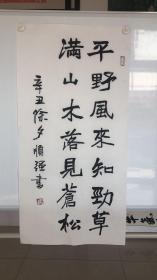 平野風來知勁草
满山木落見蒼松
辛丑除夕順強書